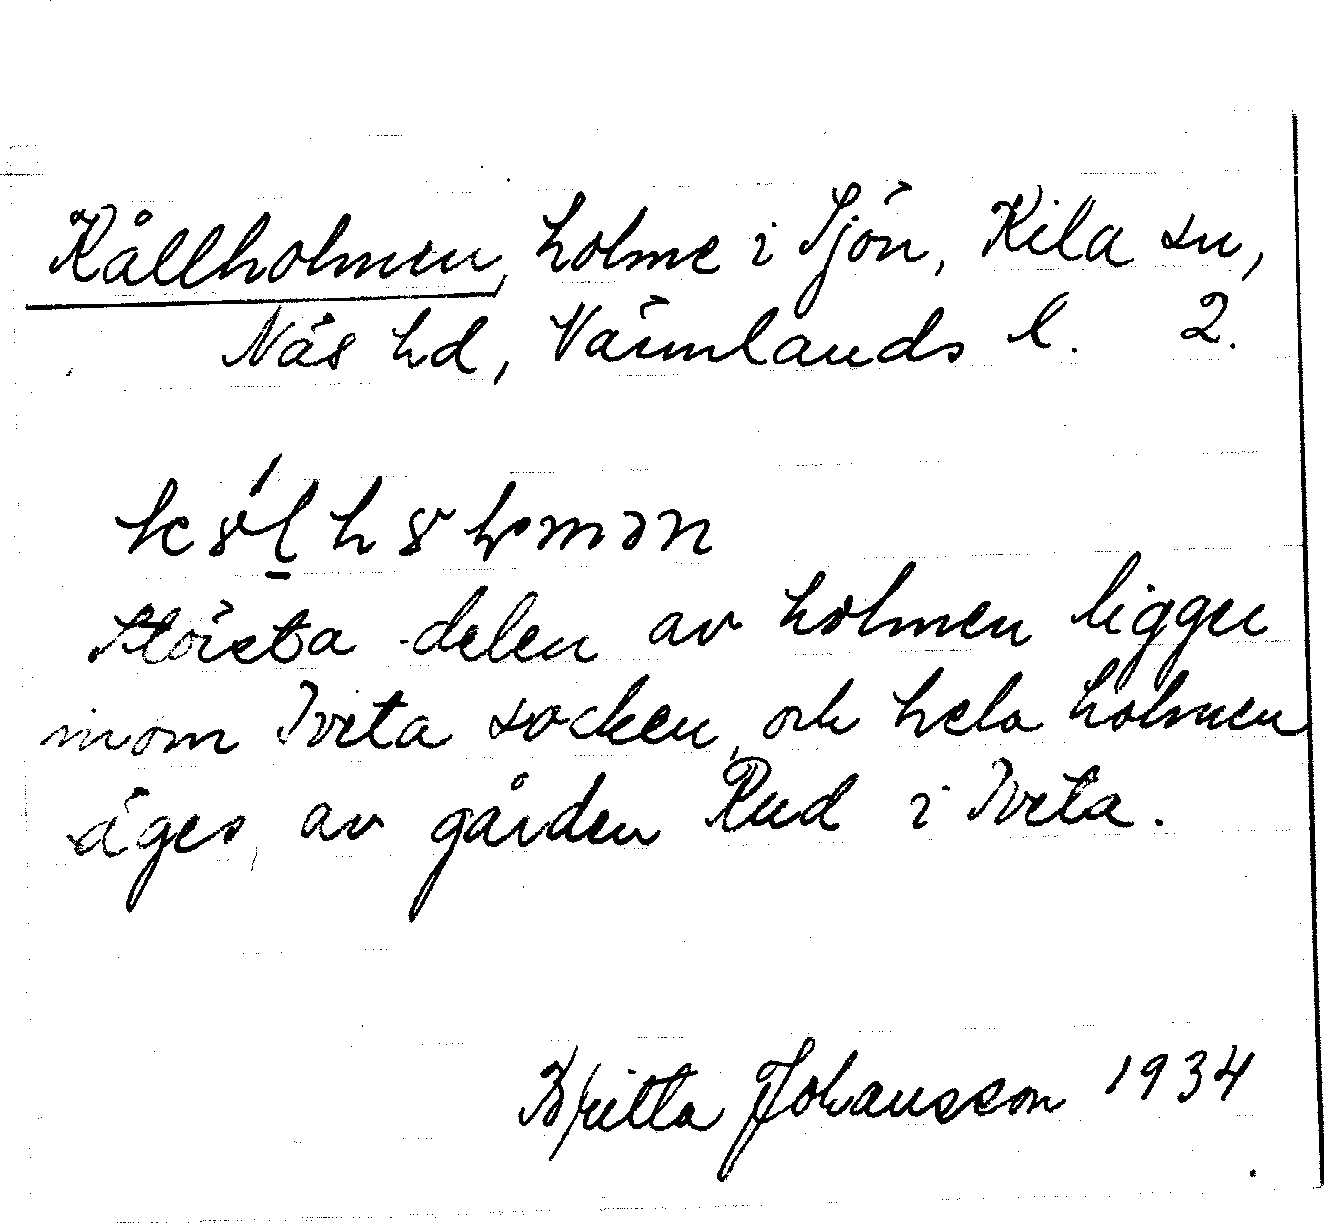 Kållholmen, holme i Sjön, Kila sn,
Näs hd, Värmlands l. 2.
Största delen av holmen ligger
inom Tveta socken, och hela holmen
äges av gården Rud i Tveta.
Britta Johansson 1934